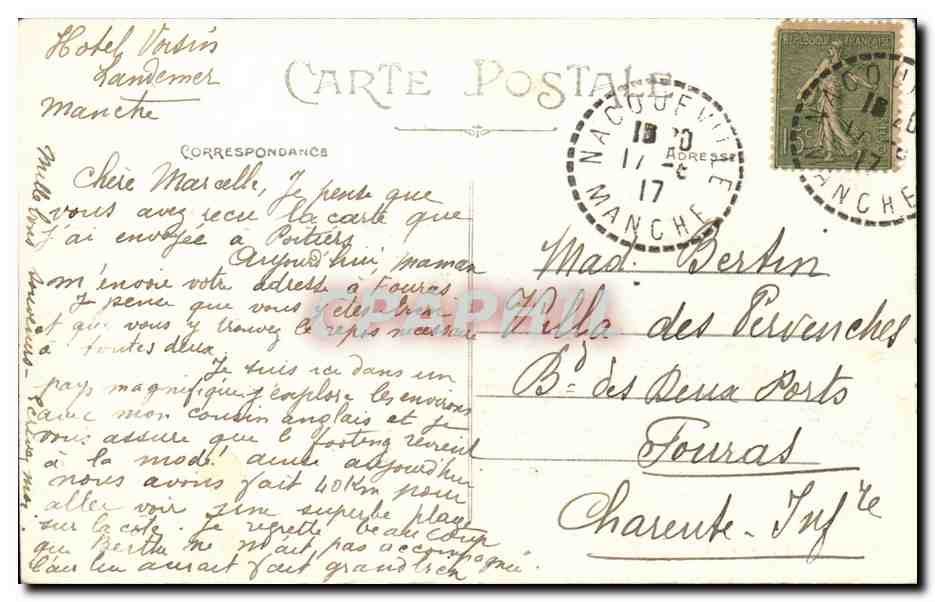 Hotel Voisin
Landemer
Manche
CARTE POSTALE
CORRESPONDANCE
ADRESSE
REPUBLIQUE FRANCAISE
15c
NACQUEVILLE
17-8
17
MANCHE
Chère Marcelle, Je pense que
vous avez recu la carte que
j'ai envoyée à Poitiers
Aujourd'hui, maman
m'envoie votre adresse à Fouras
Je pense que vous y êtes bien
et que vous y trouvez le repos nécessaire
à toutes deux
Je suis ici dans un
pays magnifique, j'explore les environs
avec mon cousin anglais et je
vous assure que le footing revient
à la mode! ainsi aujourd'hui
nous avons fait 40Km pour
aller voir une superbe plage
sur la côte. Je regrette beaucoup
que Berthe ne m'ait pas accompagnée.
L'air lui aurait fait grand bien
Mille bons souvenirs - Ecrivez moi.
Mad. Bertin
Villa des Pervenches
Bd des Deux Ports
Fouras
Charente-Infre